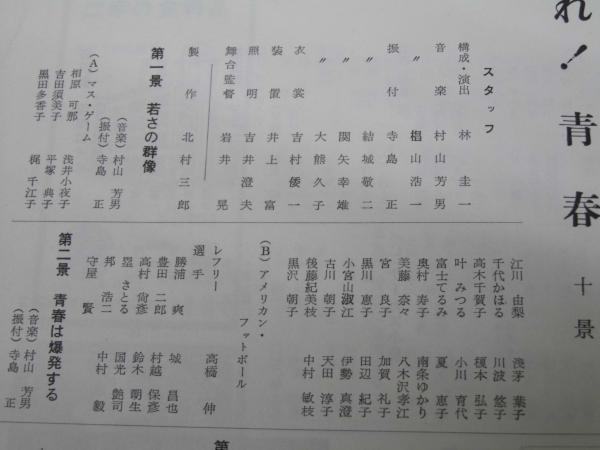 れ！青春 十景
スタッフ
構成・演出 林 圭一
音楽 村山芳男
〃 椙山浩一
振付 寺島 正
〃 結城敬二
〃 関矢幸雄
〃 大熊久子
衣裳 吉村倭一
装置 井上 富
照明 吉井澄夫
舞台監督 岩井 晃
製作 北村三郎
第一景 若さの群像
（音楽）村山 芳男
（振付）寺島 正
（A）マス・ゲーム
相原 可那 浅井小夜子
吉田須美子 平塚 典子
黒田多香子 梶 千江子
江川 由梨 浅茅 葉子
千代かほる 川波 悠子
高木千賀子 榎本 弘子
叶 みつる 小川 育代
富士てるみ 夏 恵子
奥村 寿子 南条ゆかり
美藤 奈々 八木沢孝江
宮 良子 加賀 礼子
黒川 恵子 田辺 紀子
小宮山淑江 伊勢 真澄
古川 朝子 天田 淳子
後藤紀美枝 中村 敏枝
黒沢 朝子
（B）アメリカン・
フットボール
レフリー 高橋 伸
選手
勝浦 爽 城 昌也
豊田 二郎 村越 保彦
高村 尙彦 鈴木 朗生
塁 さとる 国光 艶司
邦 浩二 中村 毅
守屋 賢
第二景 青春は爆発する
（音楽）村山 芳男
（振付）寺島 正
第